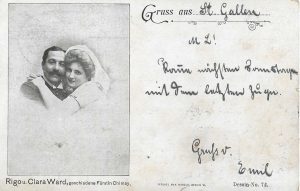 Gruss aus St. Gallen
M. L!
Komme nächsten Samstag
mit dem letzten Zuge.
Gruss v.
Emil
Rigo u. Clara Ward, geschiedene Fürstin Chimay.
Dessin-No. 73.